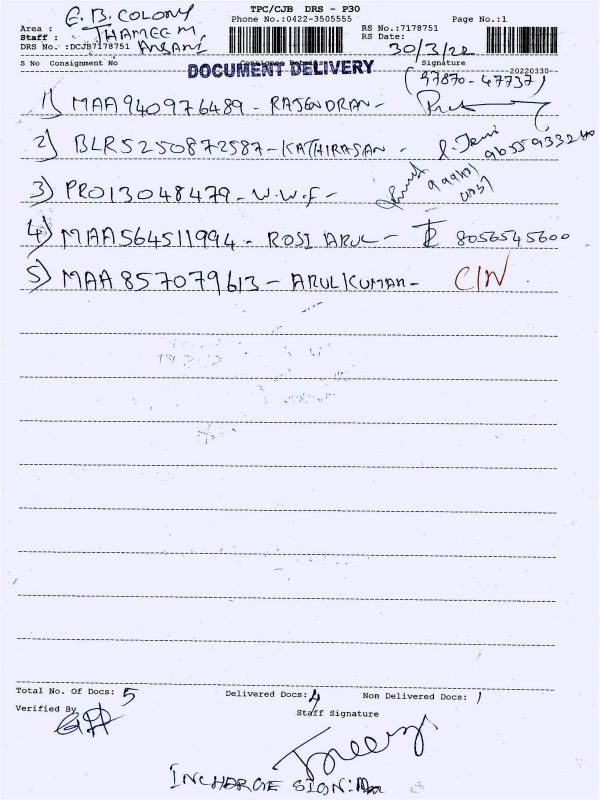 TPC/CJB DRS - P30
Phone No.:0422-3505555
Page No.:1
Area : E.B. COLONY
Staff : THAMEEM ANSARI
RS No.:7178751
RS Date: 30/3/22
DRS No. :DCJB7178751
S No Consignment No
Signature
DOCUMENT DELIVERY
-20220330-
(97870-47737)
1) MAA940976489 - RAJENDRAN -
2) BLR5250872587 - KATHIRASAN -
3) PRO13048479 - W.W.F -
4) MAA564511994 - ROSI ARUL - 8056545600
5) MAA857079613 - ARULKUMAR - C/N
Total No. Of Docs: 5
Delivered Docs: 4
Non Delivered Docs: 1
Verified By
Staff Signature
INCHARGE SIGN: